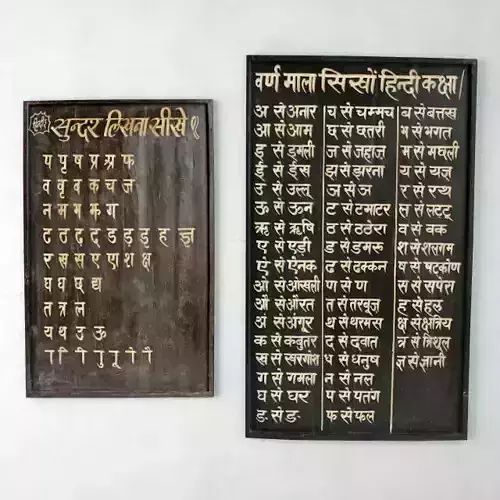 सुन्दर लिखना सीखे
प पृ ष प्र श्र फ
व वृ ब क च ज
न म ग झ ग
ट ठ ढ़ द ड ड़ इ ह ज्ञ
र स स ए ऐ श क्ष
घ ध छ द्य
त त्र ल
य थ उ ऊ
वर्ण माला सिखों हिन्दी कक्षा।
अ से अनार
आ से आम
इ से इमली
ई से ईख
उ से उल्लू
ऊ से ऊन
ऋ से ऋषि
ए से एड़ी
ऐ से ऐनक
ओ से ओखली
औ से औरत
अं से अंगूर
क से कबुतर
ख से खरगोश
ग से गमला
घ से घर
ङ से ङ
च से चम्मच
छ से छतरी
ज से जहाज
झ से झरना
ञ से ञ
ट से टमाटर
ठ से ठठेरा
ड से डमरू
ढ से ढक्कन
ण से ण
त से तरबूज
थ से थरमस
द से दवात
ध से धनुष
न से नल
प से पतंग
फ से फल
ब से बत्तख
भ से भगत
म से मछली
य से यज्ञ
र से रथ
ल से लटटू
व से वक
श से शलगम
ष से षट्कोण
स से सपेरा
ह से हल
क्ष से क्षत्रिय
त्र से त्रिशूल
ज्ञ से ज्ञानी